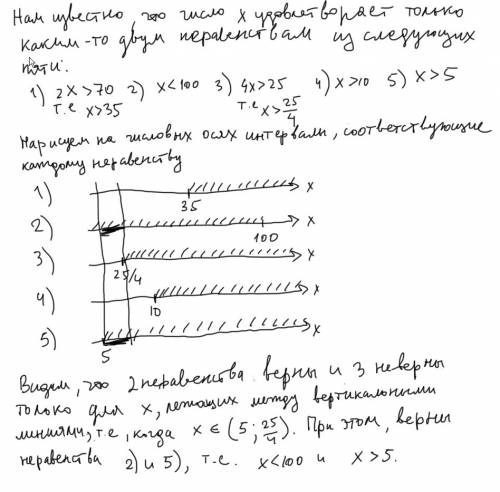 Нам известно, что число x удовлетворяет только
каким-то двум неравенствам из следующих
пяти.
1) 2x>70 2) x<100 3) 4x>25 4) x>10 5) x>5
т.е x>35 т.е x>25/4
Нарисуем на числовых осях интервалы, соответствующие
каждому неравенству
1) 35 x
2) 100 x
3) 25/4 x
4) 10 x
5) 5 x
Видим, что 2 неравенства верны и 3 неверны
только для x, лежащих между вертикальными
линиями, т.е, когда x ∈ (5; 25/4). При этом, верны
неравенства 2) и 5), т.е. x<100 и x>5.